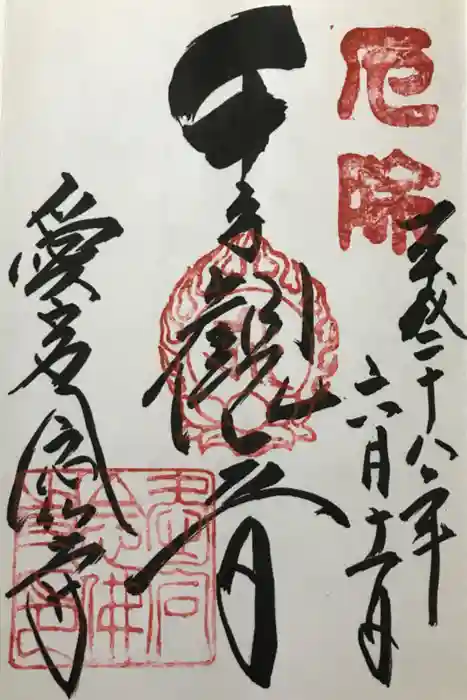 厄除
平成二十八年
六月十二日
千手観音
愛宕念仏寺